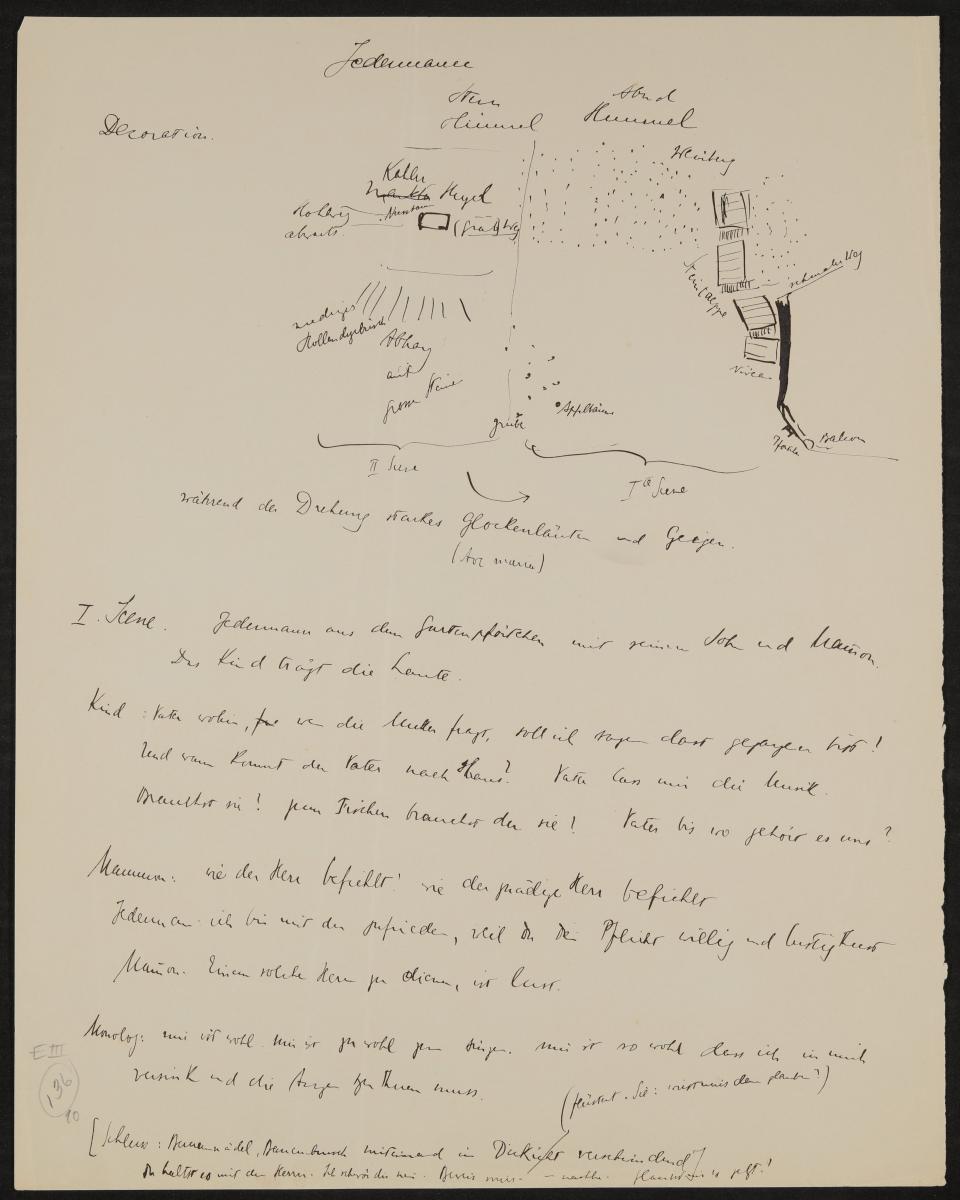 Jedermann
Decoration.
Stern
Himmel
Abend
Himmel
Weinberg
Kahler
Hügel
Hohlweg
abwärts
Weg
schmaler Weg
niedriges
Hollundergebüsch
Abhang
mit
grosse Steine
Apfelbäume
grube
Balcon
II Scene
I te Scene
während der Drehung starkes Glockenläuten und Geigen.
(Ave maria)
I. Scene. Jedermann aus dem Gartenpförtchen mit seinem Sohn und Mam̄on.
Das Kind trägt die Laute.
Kind: Vater wohin, wen die Mutter fragt, soll ich sagen dass gegangen bist!
Und wann kommt der Vater nach Haus? Vater lass mir die Musik.
Brauchst sie! zum Fischen brauchst du sie! Vater bis wo gehört es uns?
Mammon: wie der Herr befiehlt! wie der gnädige Herr befiehlt
Jedermann: ich bin mit dir zufrieden, weil du die Pflicht willig und lustig thust
Mam̄on. Einem solchen Herrn zu dienen, ist Lust.
Monolog: mir ist wohl. mir ist zu wohl zum singen. mir ist so wohl dass ich in mich
versink und die Augen zu thun muss.
(flüstert. Sie:
[Schluss: Bauernmädel, Bauernbursch miteinand in Dickicht verschwindend]
Du haltst es mit dem Herrn. Ich schwör dir nein.
E III
136
10